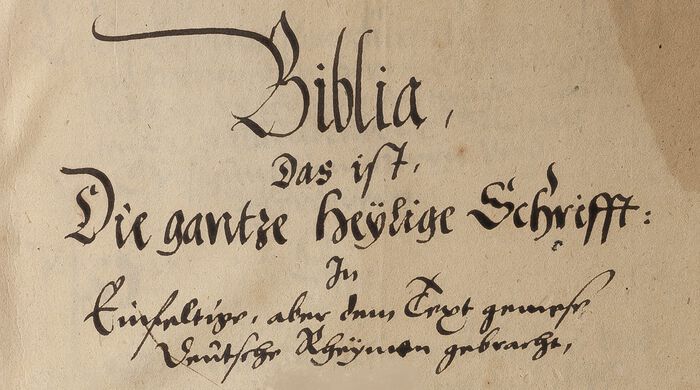 Biblia,
Das ist,
Die gantze Heÿlige Schrifft:
In
Einfeltige, aber dem Text gemese
Deutsche Rheÿmen gebracht,